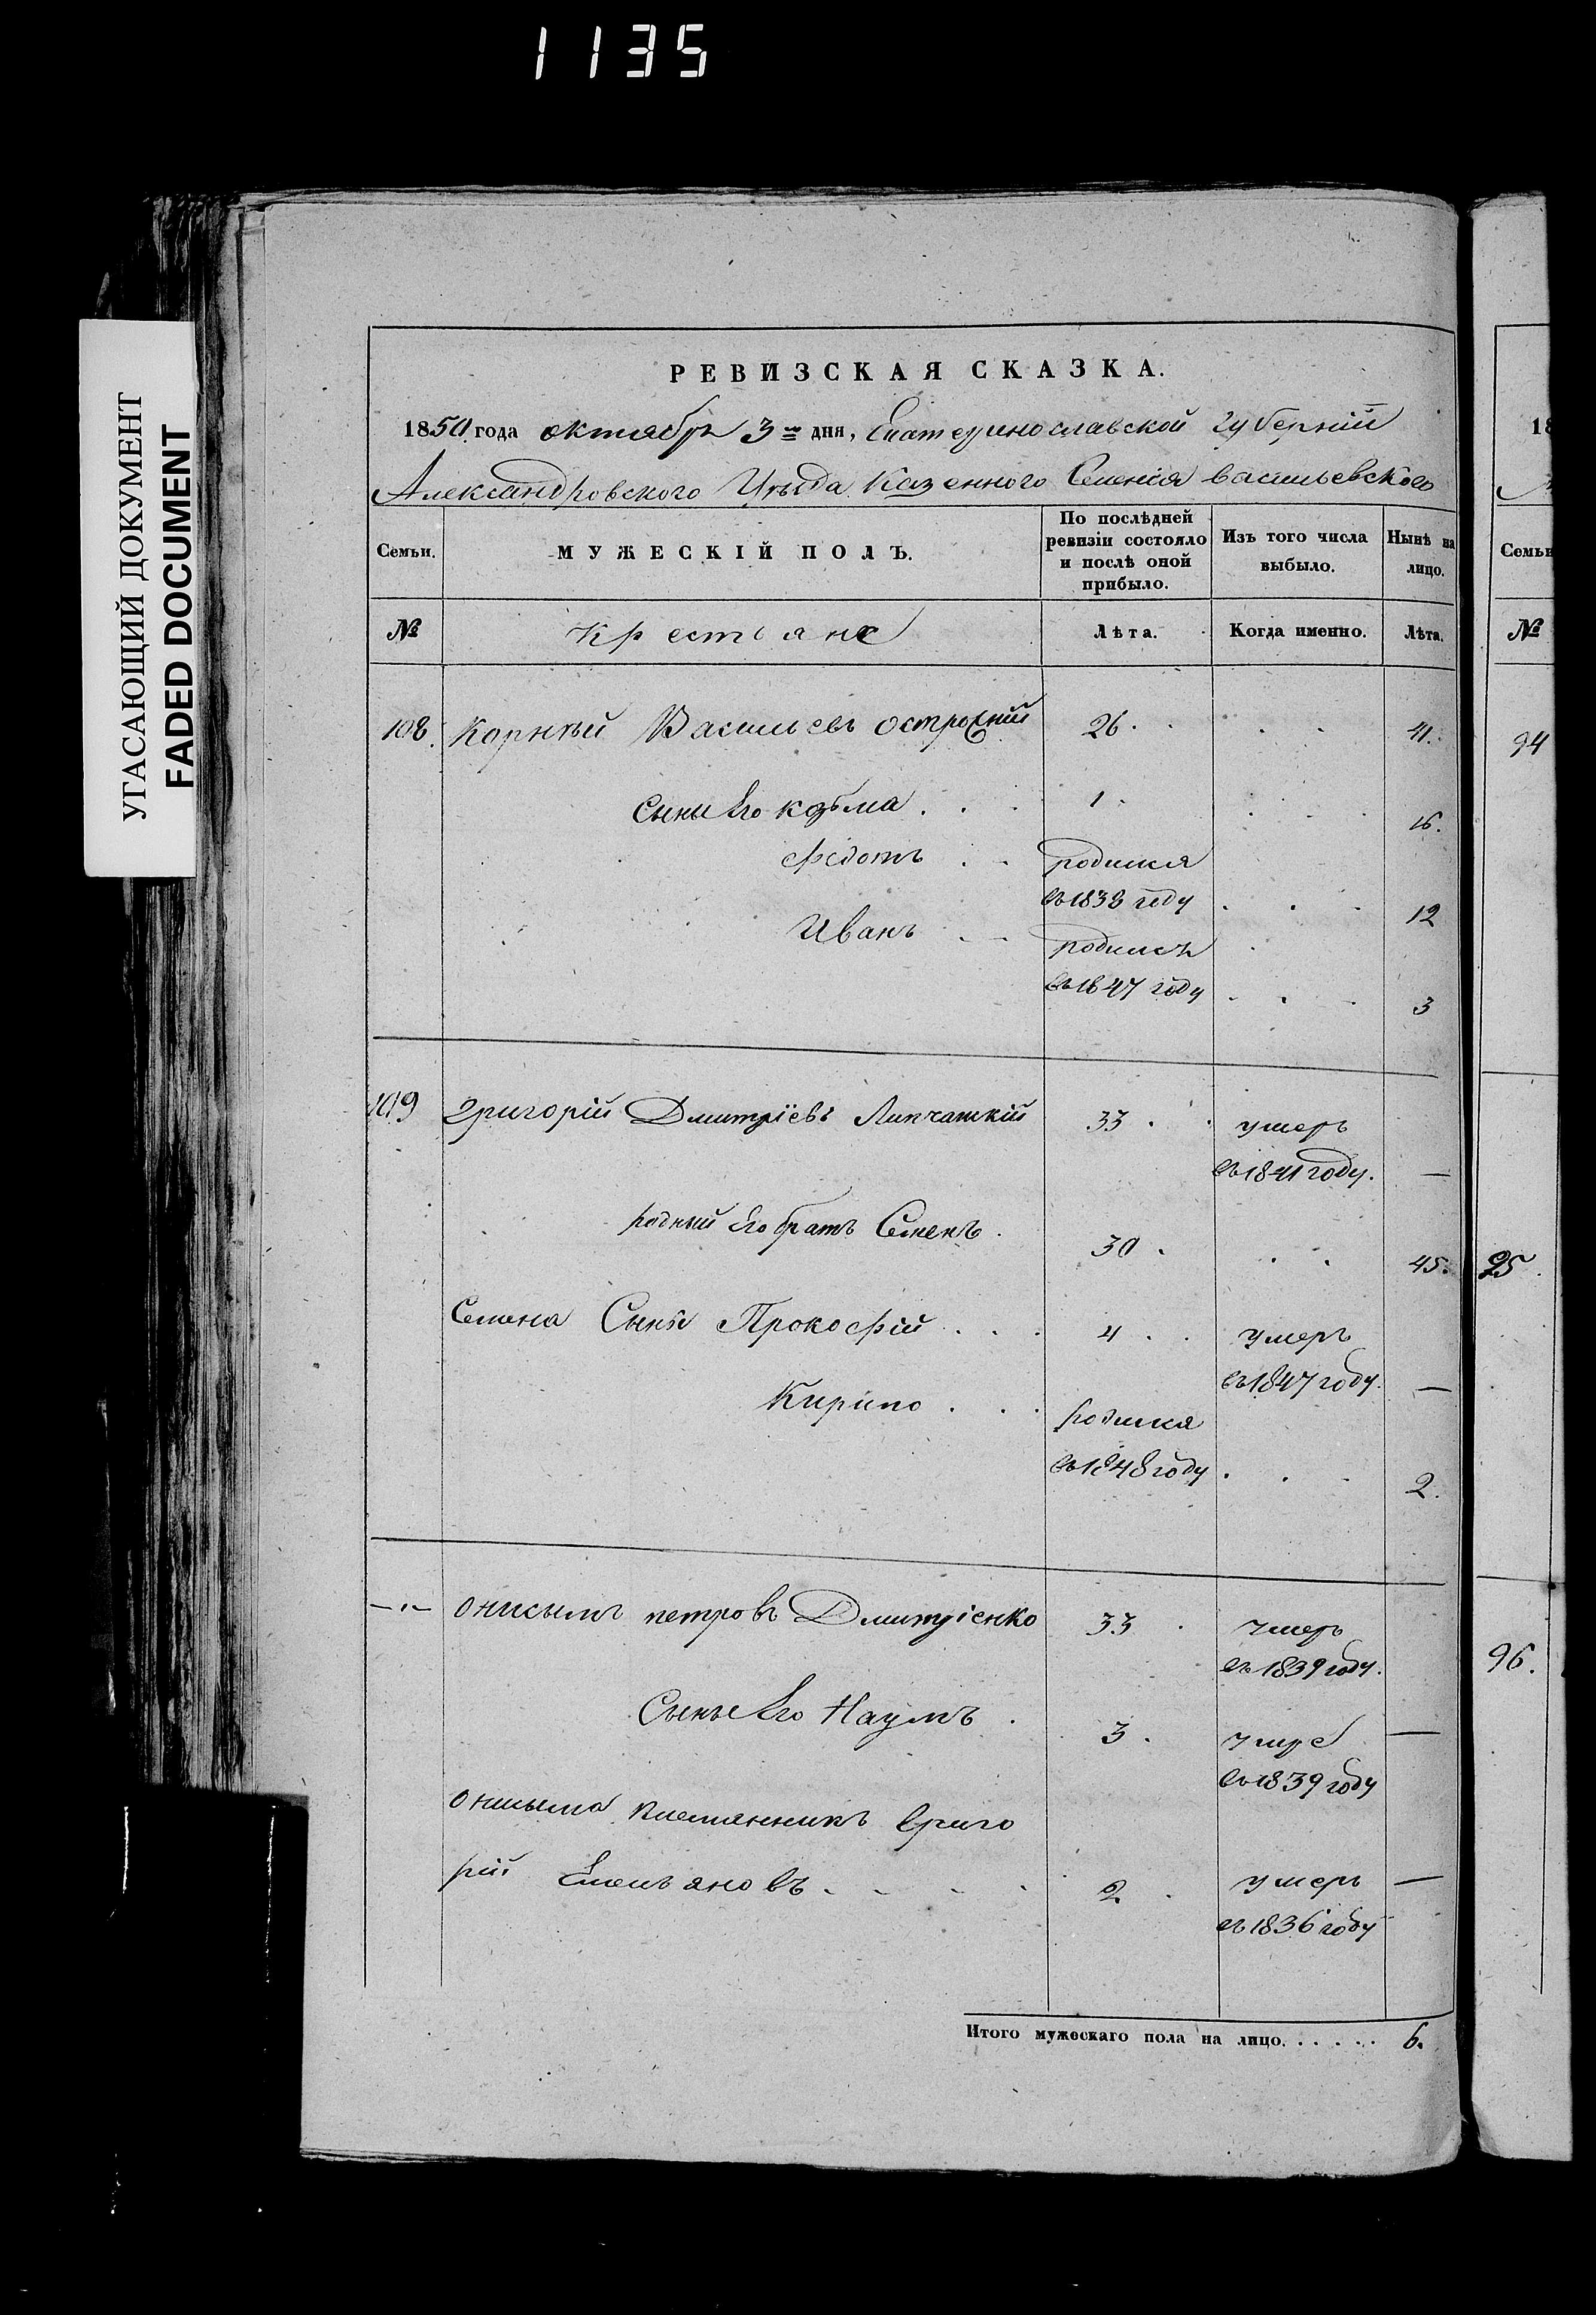 1135
УГАСАЮЩИЙ ДОКУМЕНТ
FADED DOCUMENT
РЕВИЗСКАЯ СКАЗКА.
1850 года октября 3го дня, Екатеринославской губерніи
Александровского Уѣзда Казенного Селенія васильевского
Семьи.
МУЖЕСКІЙ ПОЛЪ.
По послѣдней ревизіи состояло и послѣ оной прибыло.
Изъ того числа выбыло.
Нынѣ на лицо.
№
Крестьяне
Лѣта.
Когда именно.
Лѣта.
108. Корнѣй Васильевъ 26. 41.
Сыны Его козьма 1. 16.
Федотъ родился
въ 1838 году 12
Иванъ родился
въ 1847 году 3
109 Григорій Дмитріевъ 33 умеръ
въ 1841 году. —
родный Его братъ Семенъ. 30. 45.
Семена Сыны Прокофій 4 умеръ
въ 1847 году. —
Кирило родился
въ 1848 году 2.
—"— онисымъ петровъ Дмитріенко 33 умеръ
въ 1839 году.
Сынъ Его Наумъ. 3. умре —
въ 1839 году
онисыма племянникъ Григо
рій Емельяновъ 2 умеръ —
въ 1836 году
Итого мужескаго пола на лицо. 6.
18
Семьи
№
94
95
96.